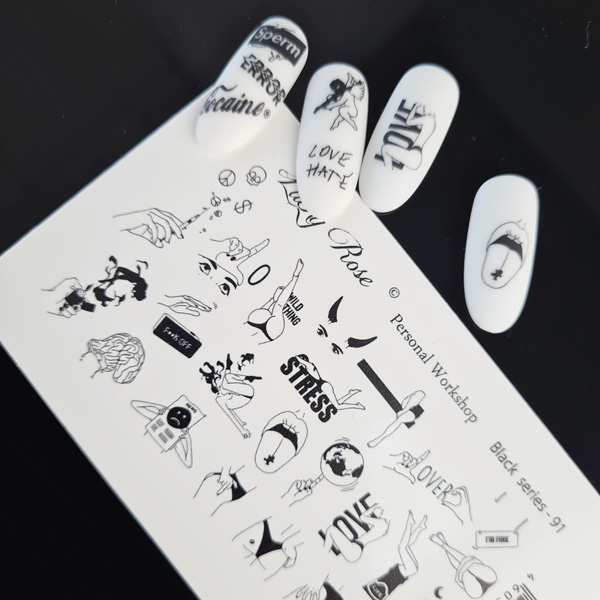 Sperm
ERROR
ERROR
Cocaine®
LOVE
HATE
LOVE
Lazy Rose
©
Personal Workshop
Black series - 91
WILD
THING
F**K OFF
STRESS
LOVER
LOVE
I'M FINE